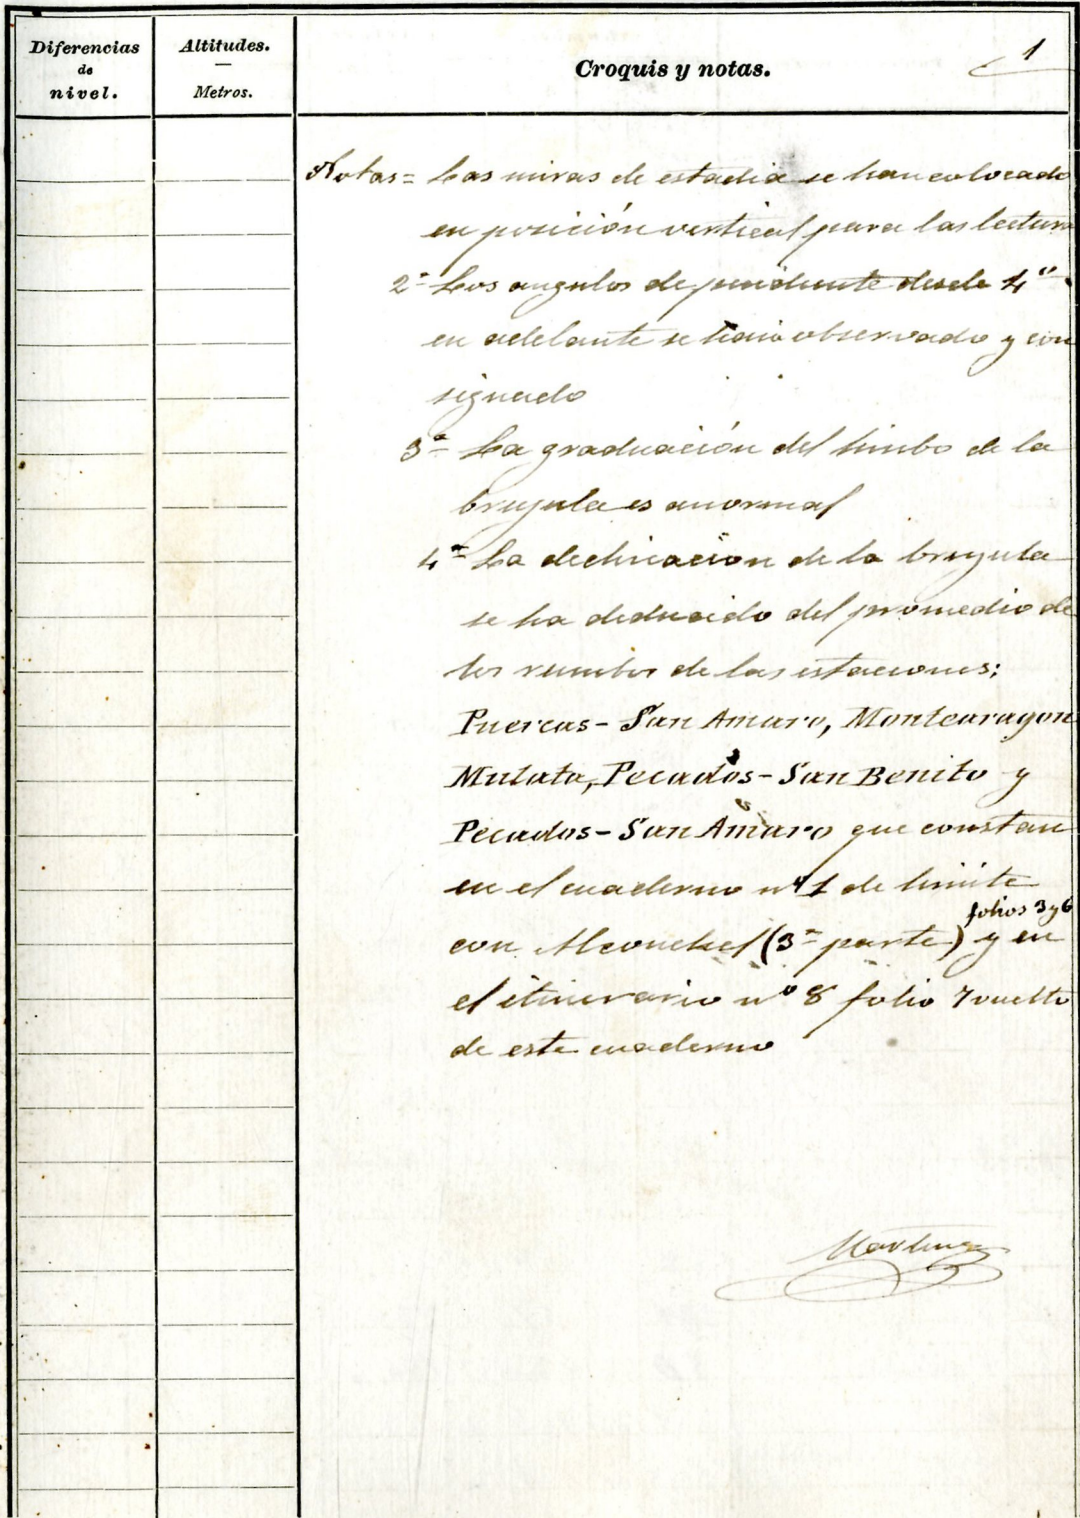 Diferencias
de
nivel.
Altitudes.
Metros.
Croquis y notas.
1
Notas = Las miras de estadia se han colocado
en posición vertical para las lectura
2ª Los angulos de pendiente desde 4º
en adelante se han observado y con
signado
3ª La graduación del limbo de la
brujula es anormal
4ª La declinación de la brujula
se ha deducido del promedio de
los rumbos de las estaciones:
Puercas - San Amaro, Montearagon
Mulata, Pecados - San Benito y
Pecados - San Amaro que constan
en el cuaderno nº 1 de limite
folios 3 y 6
con Alconchel (3ª parte) y en
el itinerario nº 8 folio 7 vuelto
de este cuaderno
Martinez